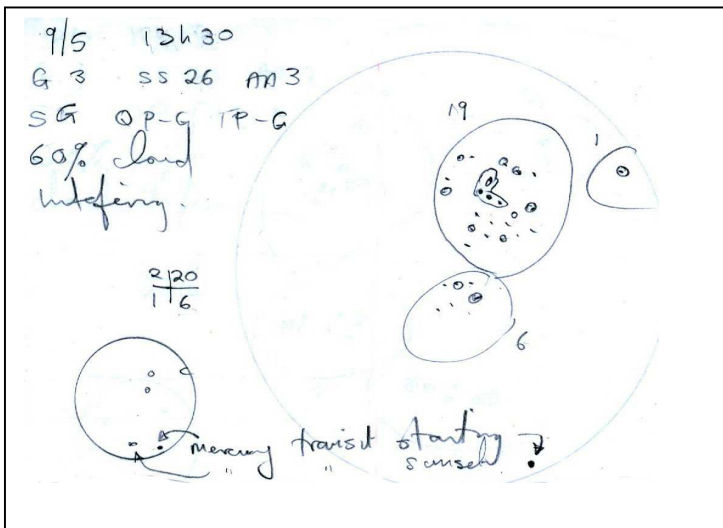 9/5 13h30
G 3 SS 26 AA 3
SG OP-G TP-G
60% cloud
19
1
2 20
1 6
6
mercury transit starting
" " sunset